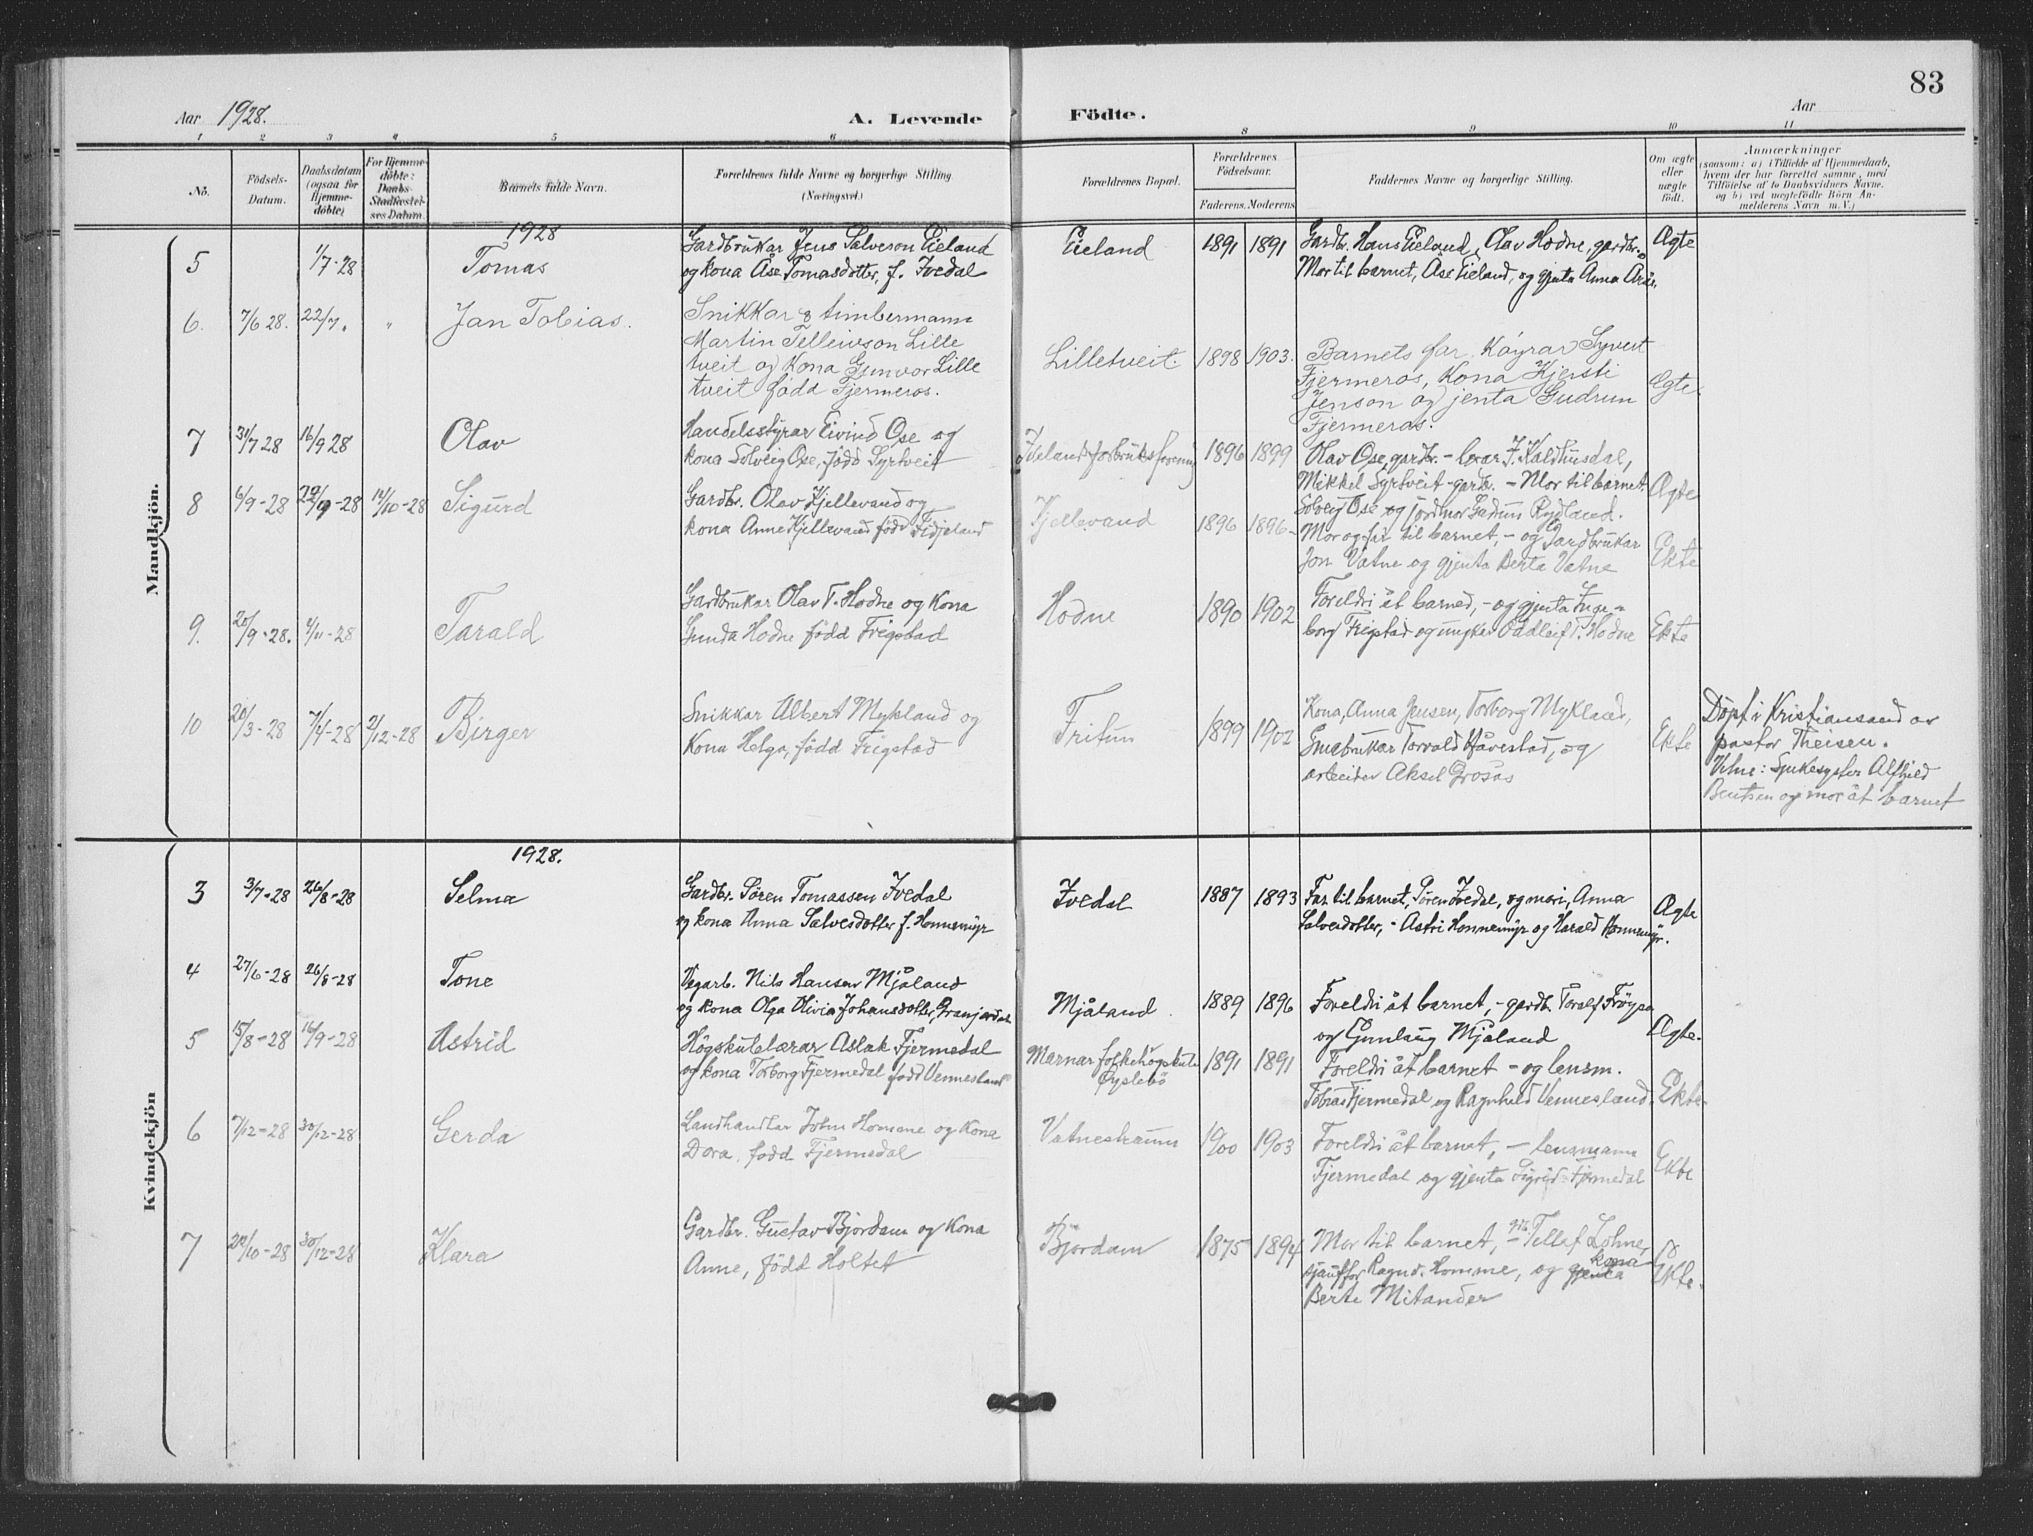 83
Aar 1928.
A. Levende Födte.
Aar
1 2 3 4 5 6 8 9 10 11
No.
Födsels-Datum.
Daabsdatum (ogsaa for Hjemmedöbte)
For Hjemmedöbte: Daabs-Stadfæstelses Datum
Barnets fulde Navn.
Forældrenes fulde Navne og borgerlige Stilling. (Næringsvei.)
Forældrenes Bopæl.
Forældrenes Födselsaar.
Faderens. Moderens.
Faddernes Navne og borgerlige Stilling.
Om ægte eller uægte födt.
Anmærkninger
(saasom: a) i Tilfælde af Hjemmedaab,
hvem der har forrettet samme, med
Tilföielse af to Daabsvidners Navne.
og b) ved uegtefödte Börn An-
melderens Navn m. V.)
Mandkjön.
1928
5 1/7-28 Tomas
Gardbrukar Jens Salveson Eieland
og kona Åse Tomasdotter, f. Ivedal
Eieland 1891 1891
Gardbr. Hans Eieland, Olav Hodne, gardbr.
Mor til barnet, Åse Eieland, og gjenta Anna
Ægte
6. 7/6 28. 22/7 " " Jan Tobias.
Snikkar & timbermann
Martin Tellewson Lille
tveit og Kona Gunvor Lille
tveit född Fjermeros.
Lilletveit. 1898 1903.
Barnets far, Syvert
Fjermeros, Kona Kjersti
Jenson og jenta Gudrun
Fjermeros.
Ægte.
7 31/7 28 16/9 28 Olav
Handelsstyrar Eivind Ose og
kona Solveig Ose, född Syrtveit
Ivelands forbruksforening 1896 1899
Olav Ose, gardbr. - lærar J. Kaldhusdal,
Mikkel Syrtveit - gardbr. - Mor til barnet
Solveig Ose og jordmor Rydland.
Ægte
8 6/9-28 -28 14/10-28 Sigurd
Gardbr. Olav Kjellevand og
kona Anne Kjellevand född Fidjeland
Kjellevand 1896 1896-
Mor og far til barnet, - og Gardbrukar
Jon Vatne og gjenta Berta Vatne
Ekte
9. 20/9-28. 4/11-28 Tarald
Gardbrukar Olav T. Hodne og Kona
Gunda Hodne född Frigstad
Hodne 1890 1902
Foreldri åt barned, - og gjenta Inge-
borg Frigstad og ungkar Oddleif T. Hodne
Ekte
10 20/3-28 7/4-28 2/12-28 Birger
Snikkar Albert Mykland og
Kona Helga, född Frigstad
Fritun 1899 1902
Kona, Anna Jensen, Torborg Mykland,
Torvald Håvestad, og
arbeider Aksel Grosås
Ekte
Döpt i Kristiansand av
pastor Theisen.
Vitne: Sjukesyster Alfhild
Bentsen og mor åt barnet
Kvindekjön
1928.
3 3/7-28 26/8-28 Selma
Gardbr. Sören Tomassen Ivedal
og kona Anna Salvesdotter f. Honnemyr
Ivedal 1887 1893
Far til barnet, Sören Ivedal, og mori, Anna
Salvesdotter, - Astri Honnemyr og Harald Honnemyr.
Ægte
4 27/6-28 26/8-28 Tone
Vegarb. Nils Hansen Mjåland
og kona Olga Olivia Johansdotter,
Mjåland. 1889 1896
Foreldri åt barnet, - gardb. Toralf Fröysa
og Gunlaug Mjåland
Ægte.
5 15/8-28 16/9-28 Astrid
Högskulelærar Aslak Fjermedal
og kona Torborg Fjermedal född Vennesland
Marnar folkehögskule Öyslebö 1891 1891
Foreldri åt barnet - og lensm.
Tobias Fjermedal og Ragnhild Vennesland.
Ekte.
6 7/12-28 30/12-28 Gerda
Landhandlar John Homme og Kona
Dora, född Fjermedal
Vatnestraum 1900 1903
Foreldri åt barnet, - lensmann
Fjermedal og gjenta Sigrid Fjermedal
Ekte
7 20/10-28 30/12-28 Klara
Gardbr. Gustav Bjordam og Kona
Anne, född Holtet
Bjordam 1875 1894
Mor til barnet, - Tellef Lohne,
sjauffor Ragnd. Homme, og gjenta kona
Berte Mitander
Ekte.